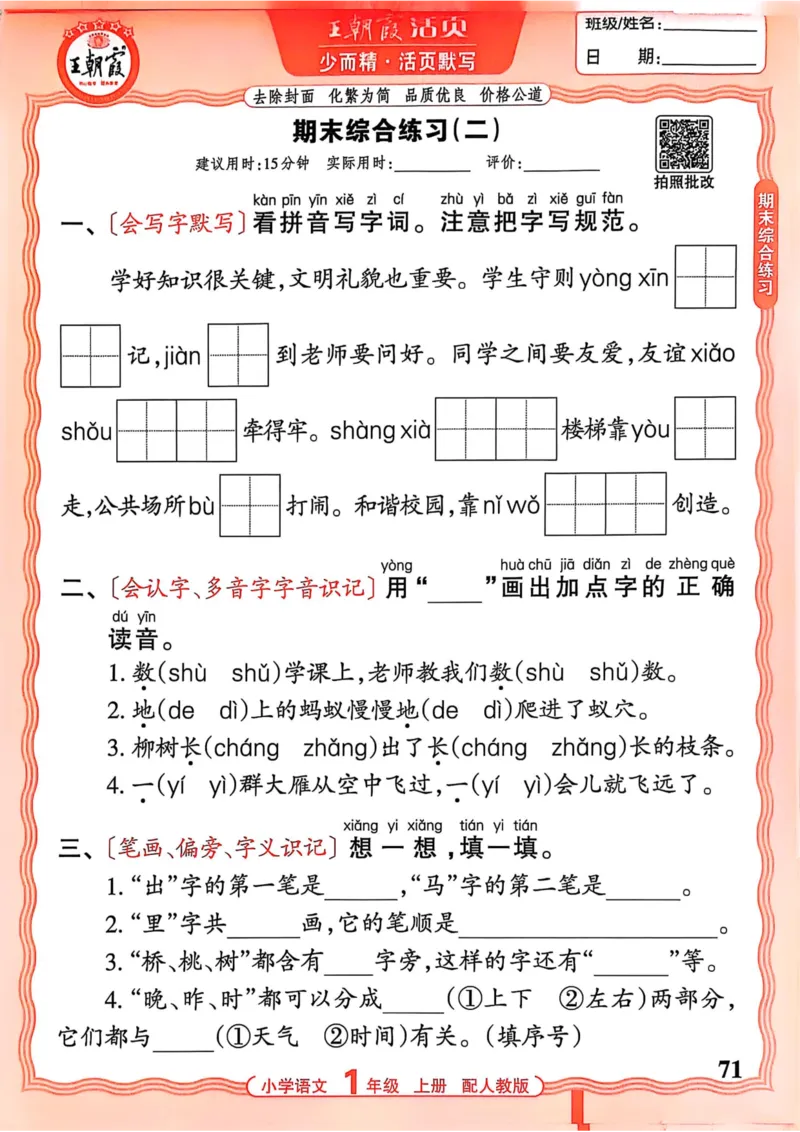 王朝霞活页
少而精·活页默写
王朝霞
班级/姓名：
日 期：
去除封面 化繁为简 品质优良 价格公道
期末综合练习(二)
建议用时:15分钟 实际用时: 评价:
拍照批改
期末综合练习
kàn pīn yīn xiě zì cí zhù yì bǎ zì xiě guī fàn
一、〔会写字默写〕看拼音写字词。注意把字写规范。
学好知识很关键,文明礼貌也重要。学生守则yòng xīn
记,jiàn 到老师要问好。同学之间要友爱,友谊xiǎo
shǒu 牵得牢。shàng xià 楼梯靠yòu
走,公共场所bù 打闹。和谐校园,靠nǐ wǒ 创造。
yòng huà chū jiā diǎn zì de zhèng què
二、〔会认字、多音字字音识记〕用“____”画出加点字的正确
dú yīn
读音。
1. 数(shù shǔ)学课上,老师教我们数(shù shǔ)数。
2. 地(de dì)上的蚂蚁慢慢地(de dì)爬进了蚁穴。
3. 柳树长(cháng zhǎng)出了长(cháng zhǎng)长的枝条。
4. 一(yí yì)群大雁从空中飞过,一(yí yì)会儿就飞远了。
xiǎng yi xiǎng tián yi tián
三、〔笔画、偏旁、字义识记〕想一想,填一填。
1. “出”字的第一笔是______,“马”字的第二笔是______。
2. “里”字共______画,它的笔顺是____________________。
3. “桥、桃、树”都含有____字旁,这样的字还有“______”等。
4. “晚、昨、时”都可以分成_____(①上下 ②左右)两部分,
它们都与_____(①天气 ②时间)有关。(填序号)
71
小学语文 1年级 上册 配人教版